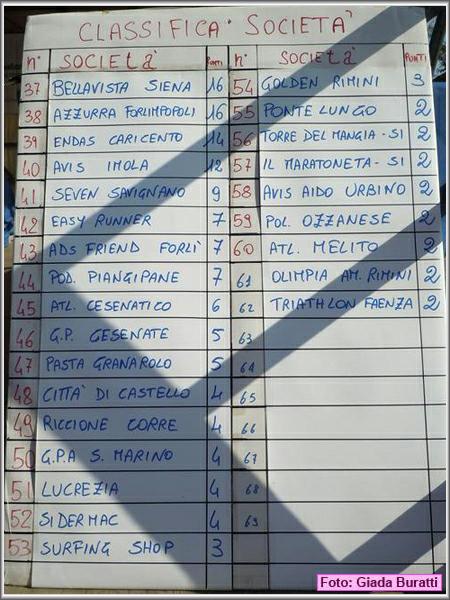 CLASSIFICA SOCIETA'
n° SOCIETà PUNTI n° SOCIETà PUNTI
37 BELLAVISTA SIENA 16 54 GOLDEN RIMINI 3
38 AZZURRA FORLIMPOPOLI 16 55 PONTE LUNGO 2
39 ENDAS CARICENTO 14 56 TORRE DEL MANGIA - SI 2
40 AVIS IMOLA 12 57 IL MARATONETA - SI 2
41 SEVEN SAVIGNANO 9 58 AVIS AIDO URBINO 2
42 EASY RUNNER 7 59 POL. OZZANESE 2
43 ADS FRIEND FORLI' 7 60 ATL. MELITO 2
44 POD. PIANGIPANE 7 61 OLIMPIA AM. RIMINI 2
45 ATL. CESENATICO 6 62 TRIATHLON FAENZA 2
46 G.P. CESENATE 5 63
47 PASTA GRANAROLO 5 64
48 CITTA' DI CASTELLO 4 65
49 RICCIONE CORRE 4 66
50 G.P.A S. MARINO 4 67
51 LUCREZIA 4 68
52 SIDERMAC 4 69
53 SURFING SHOP 3
Foto: Giada Buratti